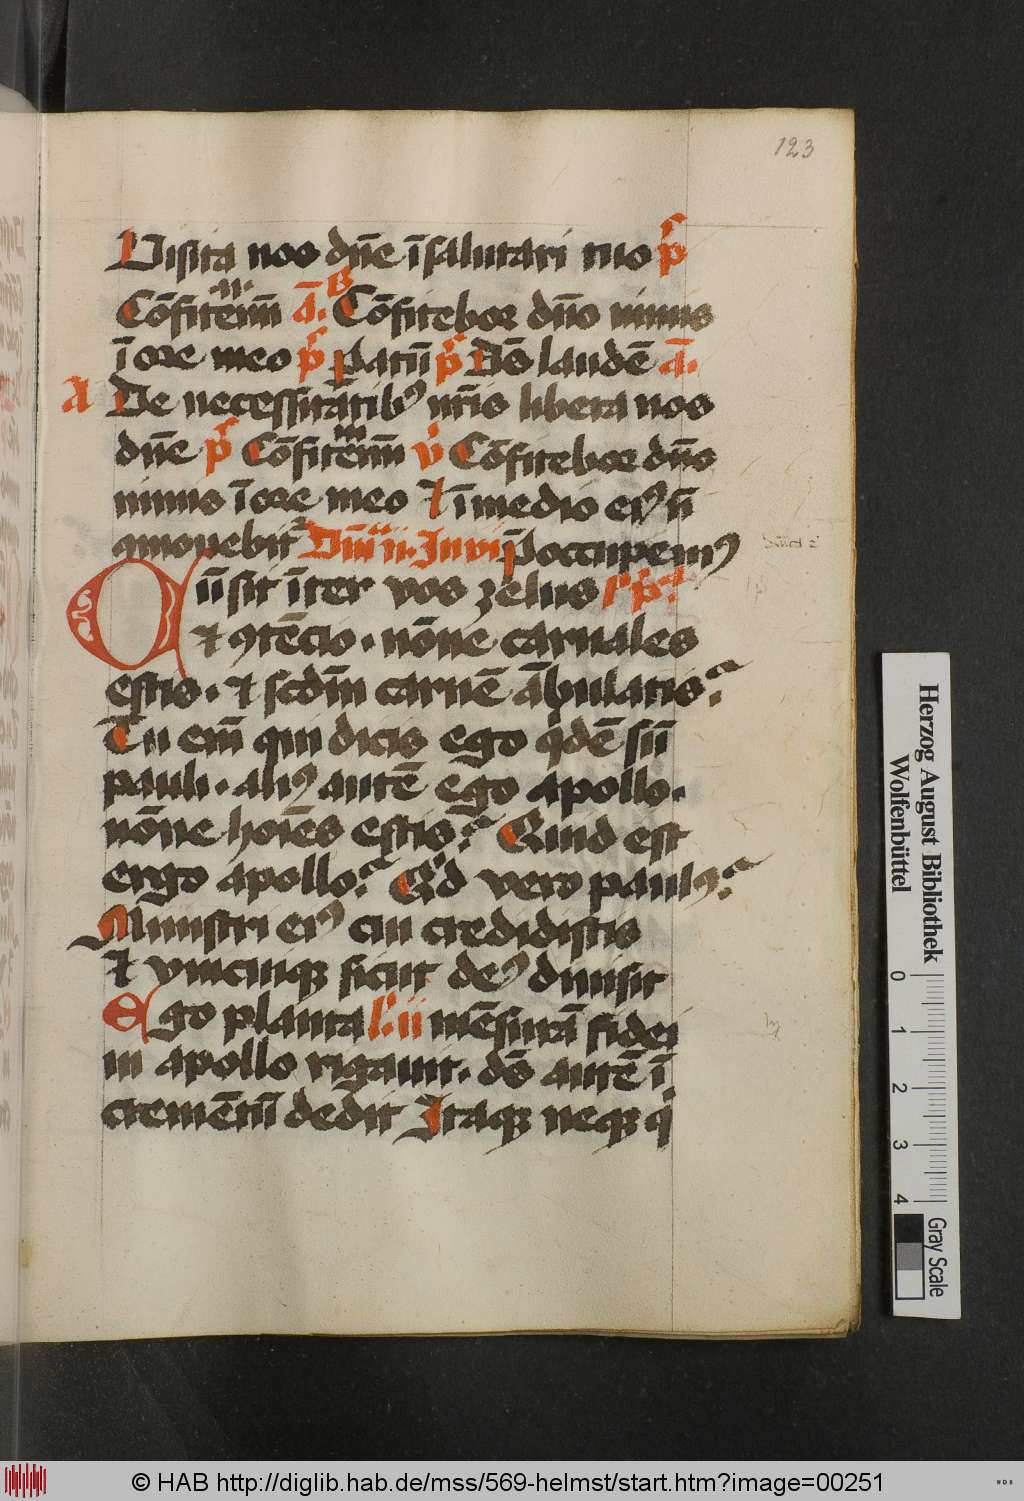 123
Visita nos dn̄e ī salutari tuo p̄s
Cōfitem̄ Ā. B Cōfitebor dn̄o nimis
ī ore meo p̄s p̄ Patrū p̄s Dš laudē Ā.
A De necessitatibꝰ nr̄is libera nos
dn̄e p̄s Cōfitem̄ v̄ Cōfitebor dn̄o
nimis ī ore meo ⁊ ī medio eiꝰ n̄
ꝯmouebit᷑ Dn̄ica ii. Inui P̄occupemꝰ
Cū sit īter vos zelus l' p̄
⁊ ꝯtēcio. nōne carnales
estis. ⁊ scdm̄ carnē ābulatis?
Tu em̄ qui dicis ego qͥdē sū
pauli. aliꝰ autē ego apollo.
nōne hoīes estis? Quid est
ergo apollo? Qͥd vero paulꝰ?
Ministri eiꝰ cui credidistis
⁊ vnicuiqꝫ sicut deꝰ diuisit
Ego plantaui l' ii mēsurā fidei
apollo rigauit. dš autē ī
crementū dedit Itaqꝫ neqꝫ qͥ
Herzog August Bibliothek
Wolfenbüttel
0 1 2 3 4
Gray Scale
© HAB http://diglib.hab.de/mss/569-helmst/start.htm?image=00251